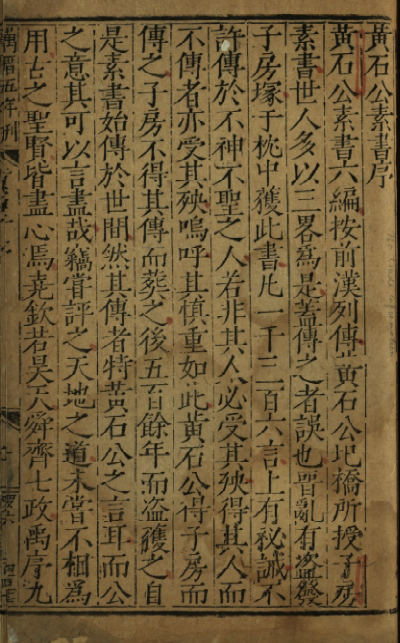 黃石公素書序
黃石公素書六編按前漢列傳黃石公圯橋所授子房
素書世人多以三畧爲是蓋傳之者誤也晉亂有盜發
子房塚于枕中獲此書凡一千三百六言上有秘誡不
許傳於不神不聖之人若非其人必受其殃得其人而
不傳者亦受其殃嗚呼其慎重如此黃石公得子房而
傳之子房不得其傳而葬之後五百餘年而盜獲之自
是素書始傳於世間然其傳者特黃石公之言耳而公
之意其可以言盡哉竊嘗評之天地之道未嘗不相爲
用古之聖賢皆盡心焉堯欽若昊天舜齊七政禹序九
萬曆五年刊